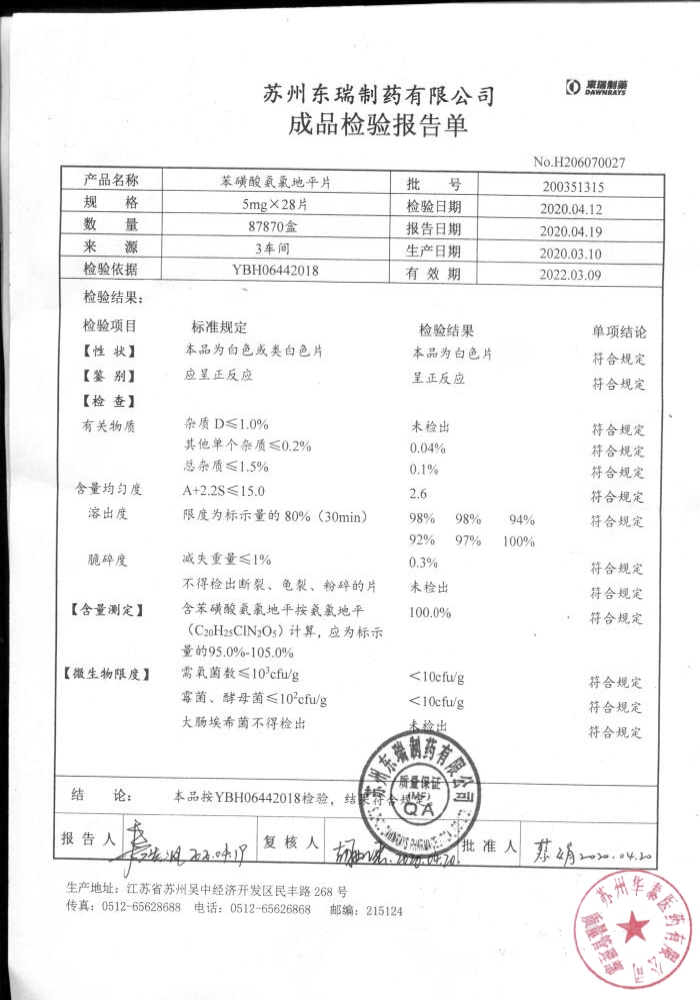 東瑞制藥
DAWNRAYS
苏州东瑞制药有限公司
成品检验报告单
No.H206070027
产品名称 苯磺酸氨氯地平片 批 号 200351315
规 格 5mg×28片 检验日期 2020.04.12
数 量 87870盒 报告日期 2020.04.19
来 源 3车间 生产日期 2020.03.10
检验依据 YBH06442018 有 效 期 2022.03.09
检验结果：
检验项目 标准规定 检验结果 单项结论
【性 状】 本品为白色或类白色片 本品为白色片 符合规定
【鉴 别】 应呈正反应 呈正反应 符合规定
【检 查】
有关物质 杂质 D≤1.0% 未检出 符合规定
其他单个杂质≤0.2% 0.04% 符合规定
总杂质≤1.5% 0.1% 符合规定
含量均匀度 A+2.2S≤15.0 2.6 符合规定
溶出度 限度为标示量的 80%（30min） 98% 98% 94% 符合规定
92% 97% 100%
脆碎度 减失重量≤1% 0.3% 符合规定
不得检出断裂、龟裂、粉碎的片 未检出 符合规定
【含量测定】 含苯磺酸氨氯地平按氨氯地平 100.0% 符合规定
（C₂₀H₂₅ClN₂O₅）计算，应为标示
量的95.0%-105.0%
【微生物限度】 需氧菌数≤10³cfu/g ＜10cfu/g 符合规定
霉菌、酵母菌≤10²cfu/g ＜10cfu/g 符合规定
大肠埃希菌不得检出 未检出 符合规定
苏州东瑞制药有限公司
质量保证
QA
结 论： 本品按YBH06442018检验，结果符合规定。
报 告 人 2020.04.19 复 核 人 2020.04.20 批 准 人 2020.04.20
生产地址：江苏省苏州吴中经济开发区民丰路 268 号
传真：0512-65628688 电话：0512-65626868 邮编：215124
苏州华泰医药有限公司
质量管理部